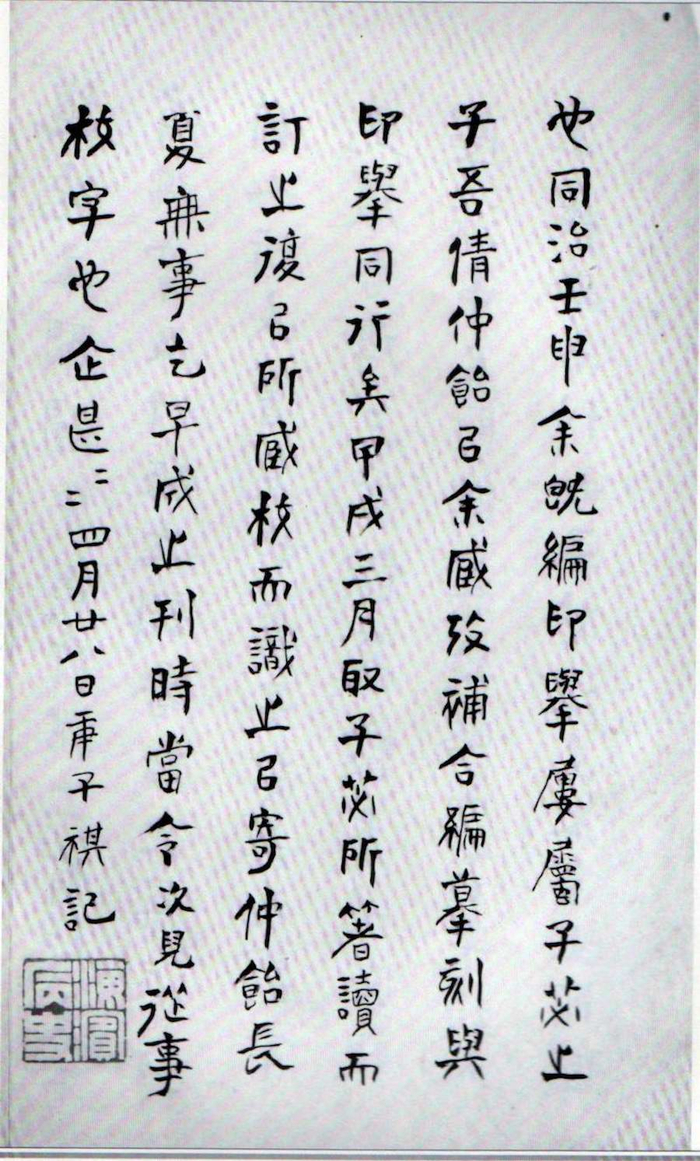 也同治壬申余既編印舉屢屬子苾之
子吾倩仲飴㠯余藏攷補合編摹刻與
印舉同行矣甲戌三月取子苾所箸讀而
訂之復㠯所藏校而識之㠯寄仲飴長
夏無事乞早成之刊時當令次兒從事
校字也企甚二二四月廿八日庚子祺記
海濱病史